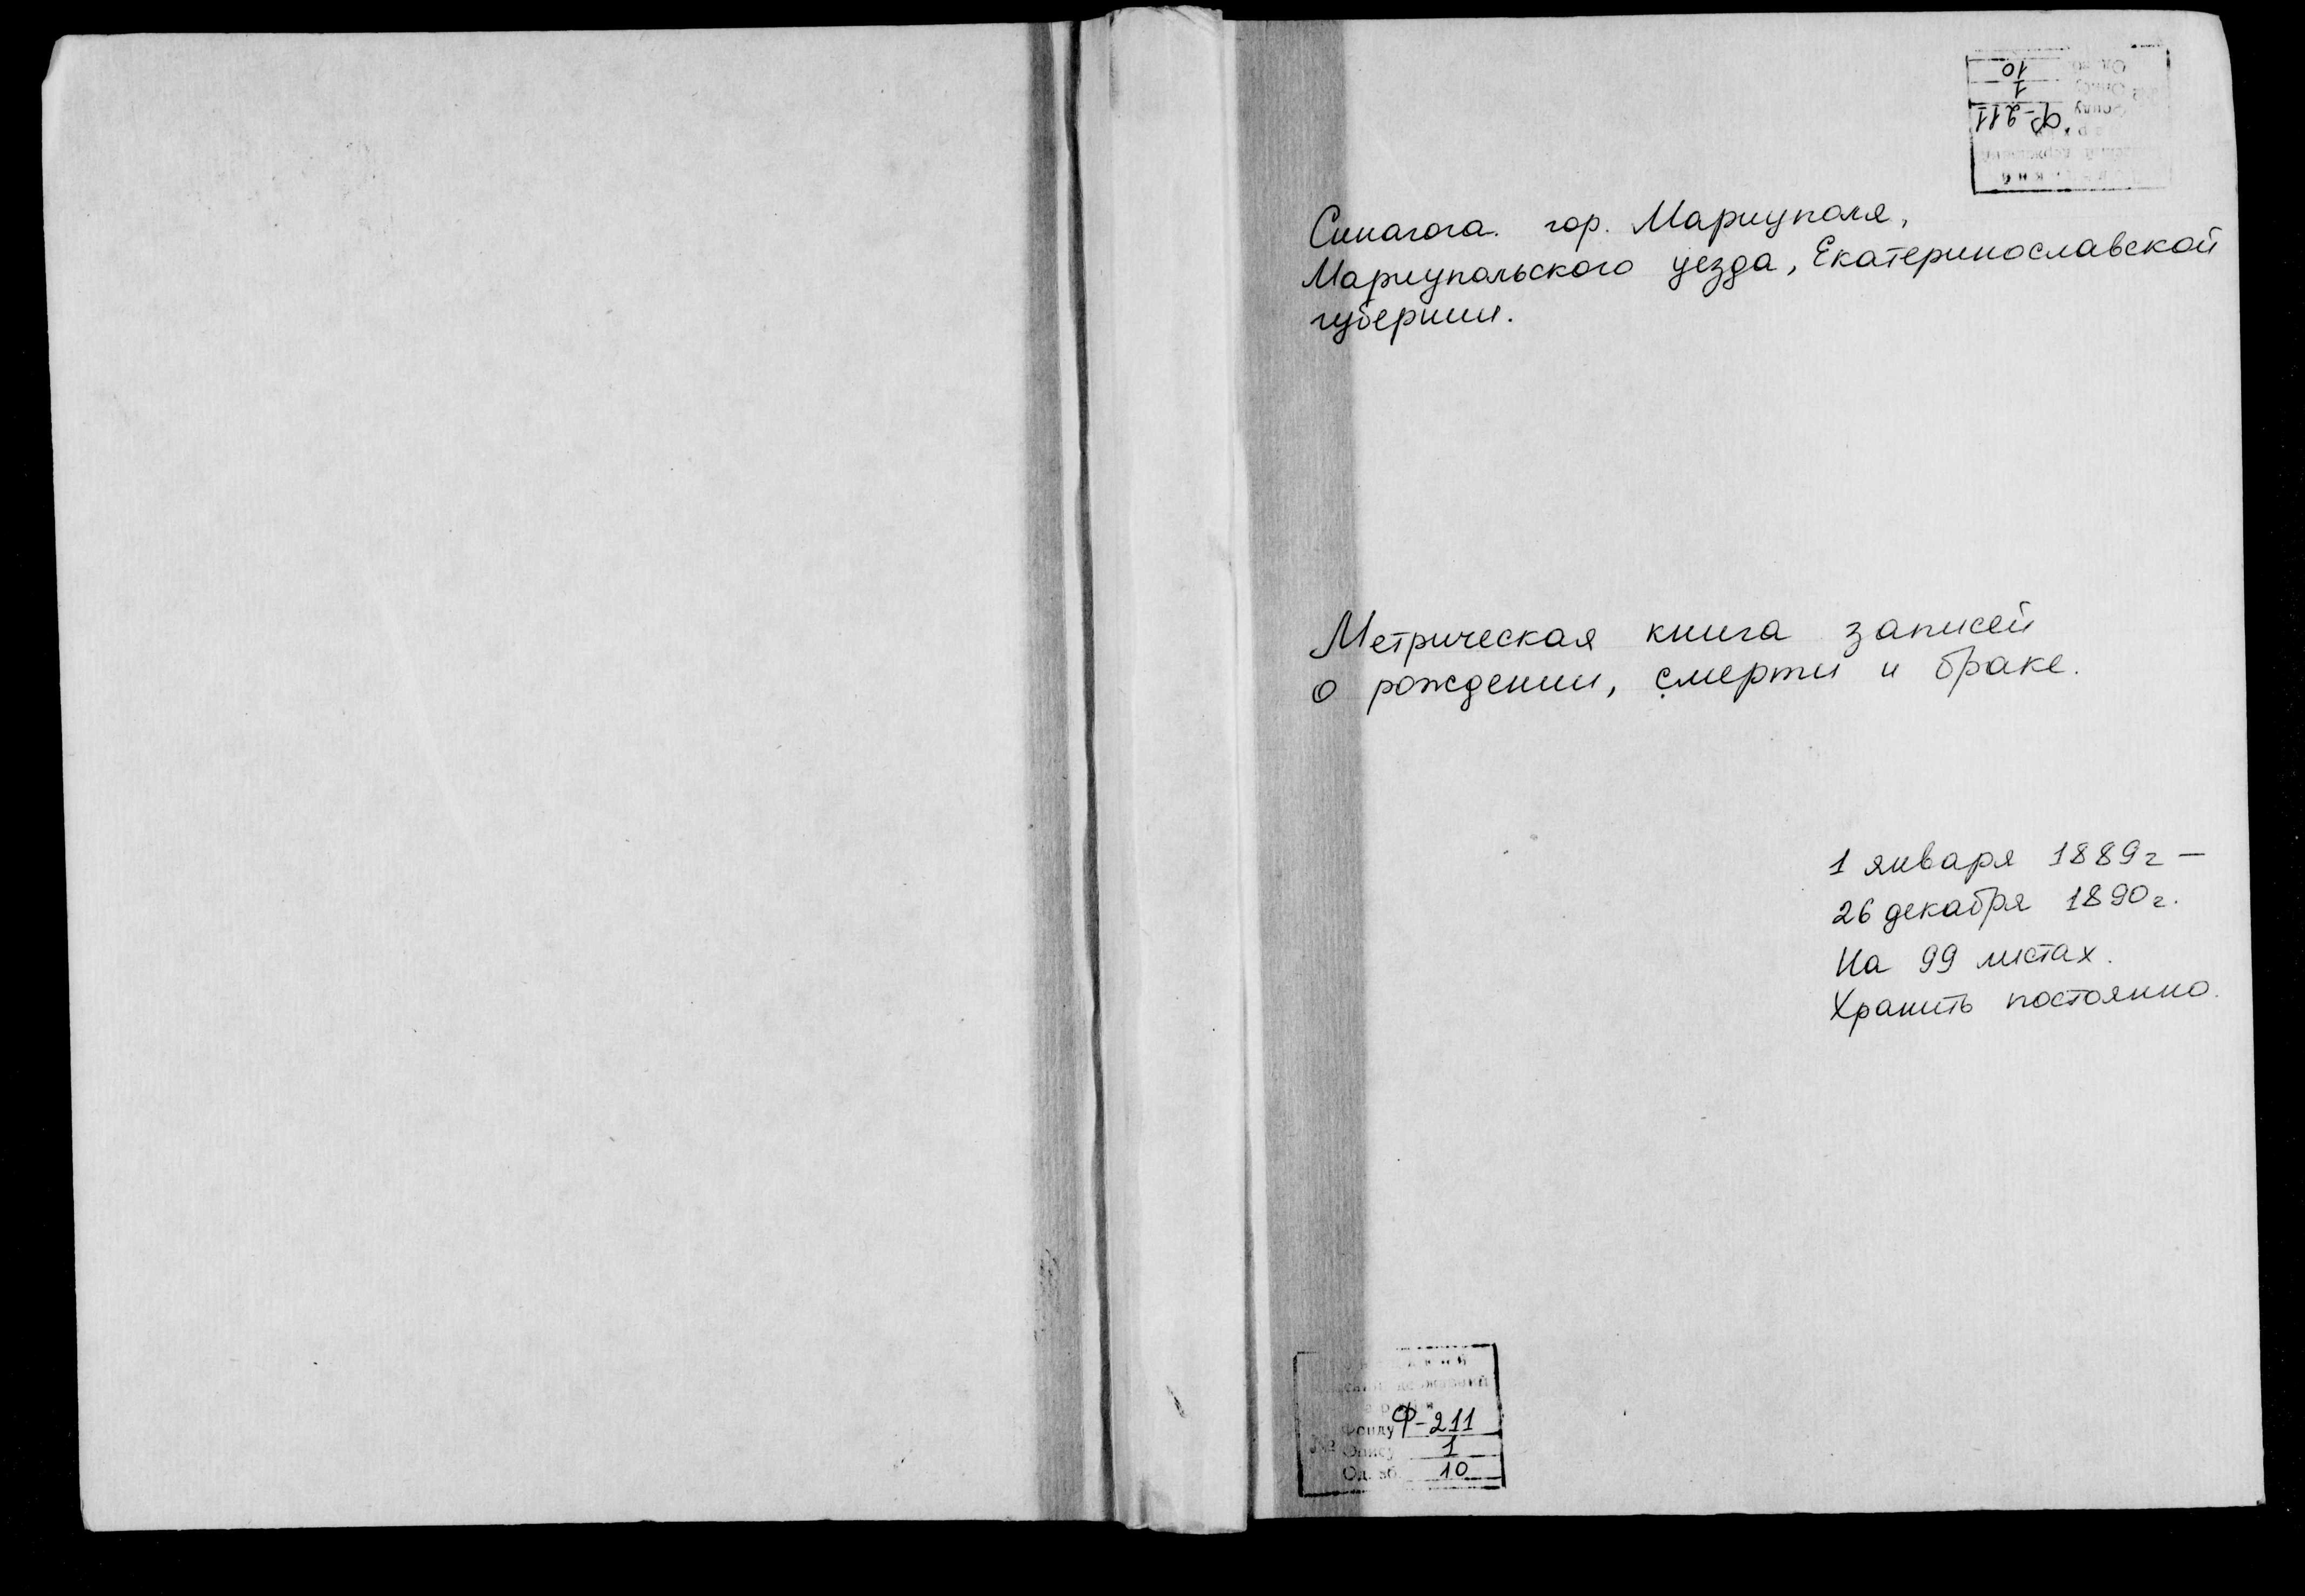 Синагога. гор. Мариуполя,
Мариупольского уезда, Екатеринославской
губернии.
Метрическая книга записей
о рождении, смерти и браке.
1 января 1889г —
26 декабря 1890г.
На 99 листах.
Хранить постоянно.
Фонду Ф-211
№ Опису 1
Од. зб. 10
Фонду Ф-211
№ Опису 1
Од. зб. 10